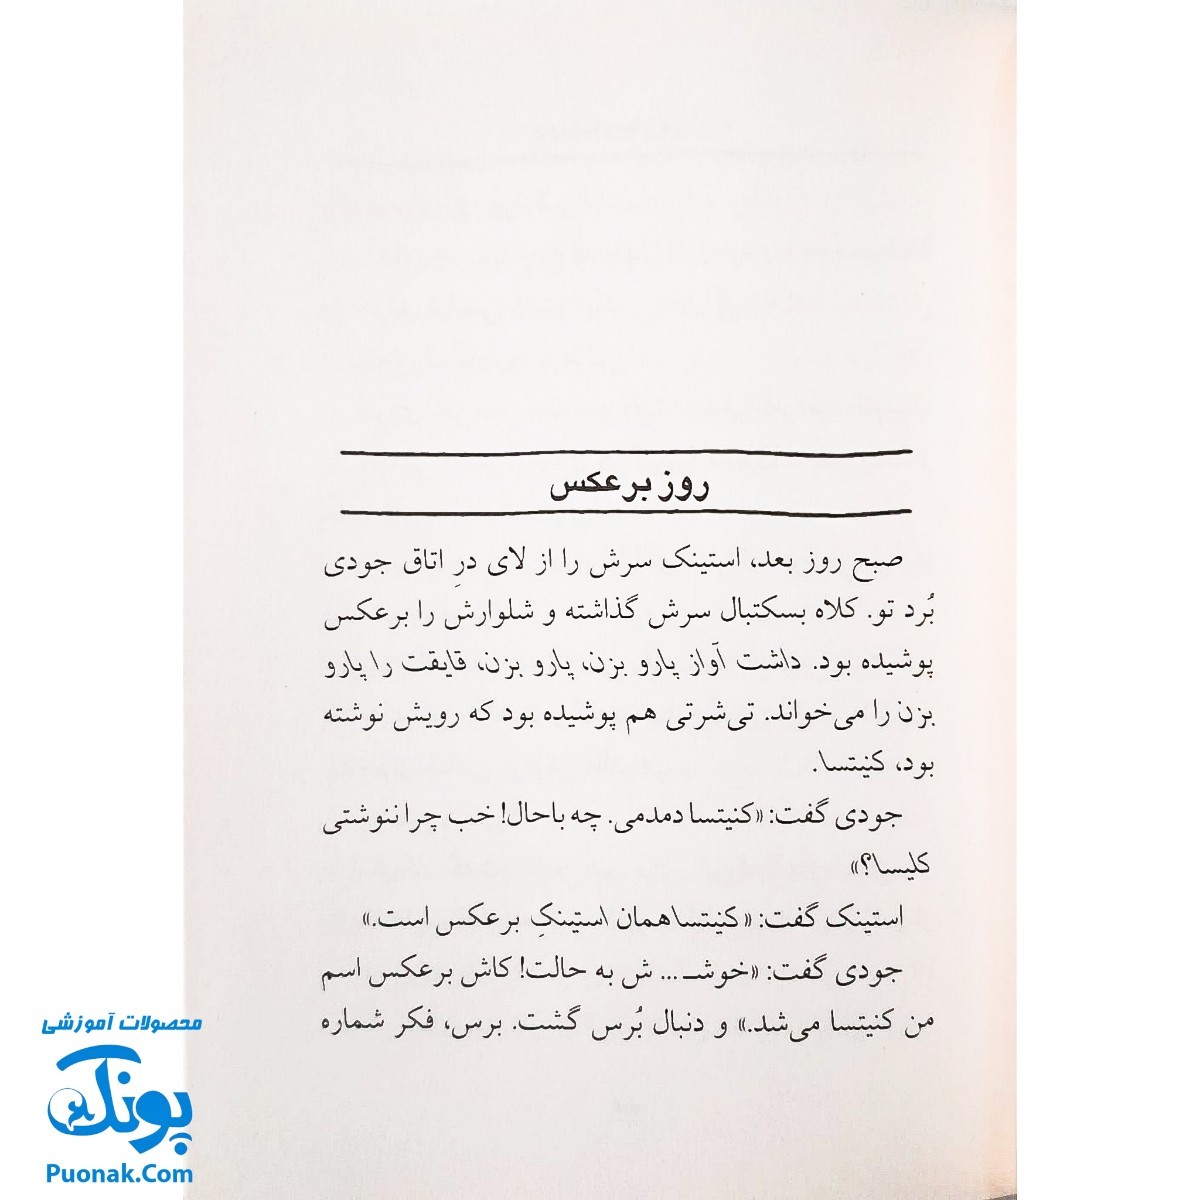 روز برعکس
صبح روز بعد، استینک سرش را از لای درِ اتاق جودی
بُرد تو. کلاه بسکتبال سرش گذاشته و شلوارش را برعکس
پوشیده بود. داشت آواز پارو بزن، پارو بزن، قایقت را پارو
بزن را می‌خواند. تی‌شرتی هم پوشیده بود که رویش نوشته
بود، کنیتسا.
جودی گفت: «کنیتسا دمدمی. چه باحال! خب چرا ننوشتی
کلیسا؟»
استینک گفت: «کنیتسا همان استینکِ برعکس است.»
جودی گفت: «خوشـ ... ش به حالت! کاش برعکس اسم
من کنیتسا می‌شد.» و دنبال بُرس گشت. برس، فکر شماره
محصولات آموزشی
پونک
Puonak.Com